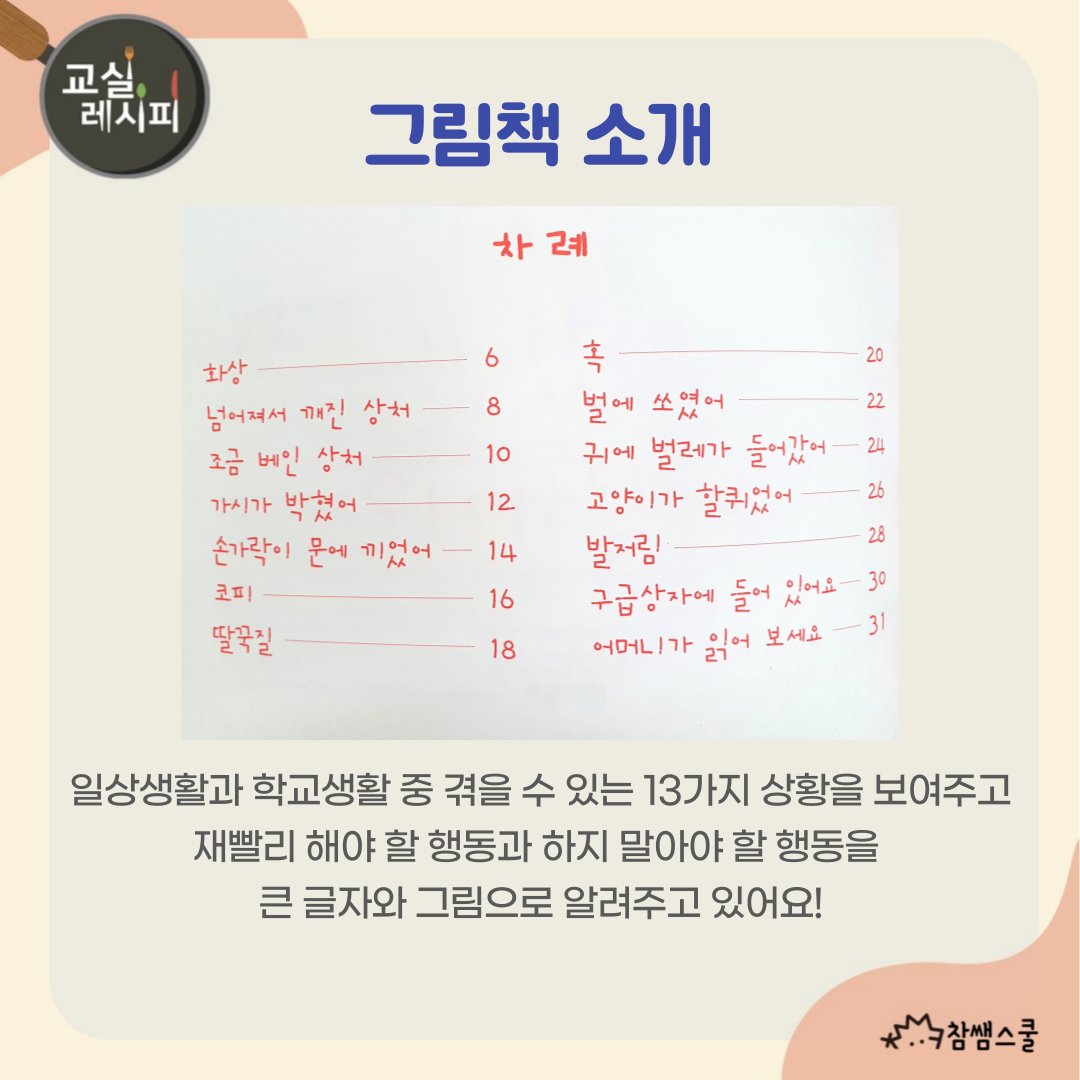 교실
레시피
그림책 소개
차례
화상 6
넘어져서 깨진 상처 8
조금 베인 상처 10
가시가 박혔어 12
손가락이 문에 끼었어 14
코피 16
딸꾹질 18
혹 20
벌에 쏘였어 22
귀에 벌레가 들어갔어 24
고양이가 할퀴었어 26
발저림 28
구급상자에 들어 있어요 30
어머니가 읽어 보세요 31
일상생활과 학교생활 중 겪을 수 있는 13가지 상황을 보여주고
재빨리 해야 할 행동과 하지 말아야 할 행동을
큰 글자와 그림으로 알려주고 있어요!
참쌤스쿨